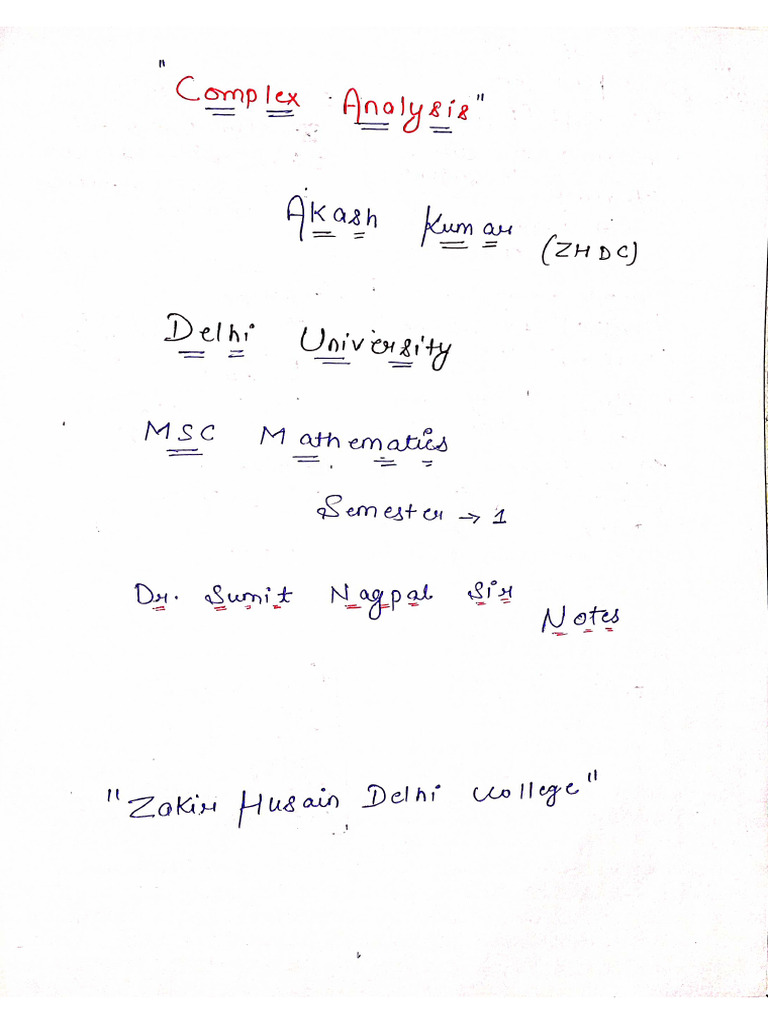 "Complex Analysis"
Akash Kumar
(ZHDC)
Delhi University
MSC Mathematics
Semester → 1
Dr. Sumit Nagpal Sir
Notes
"Zakir Husain Delhi College"